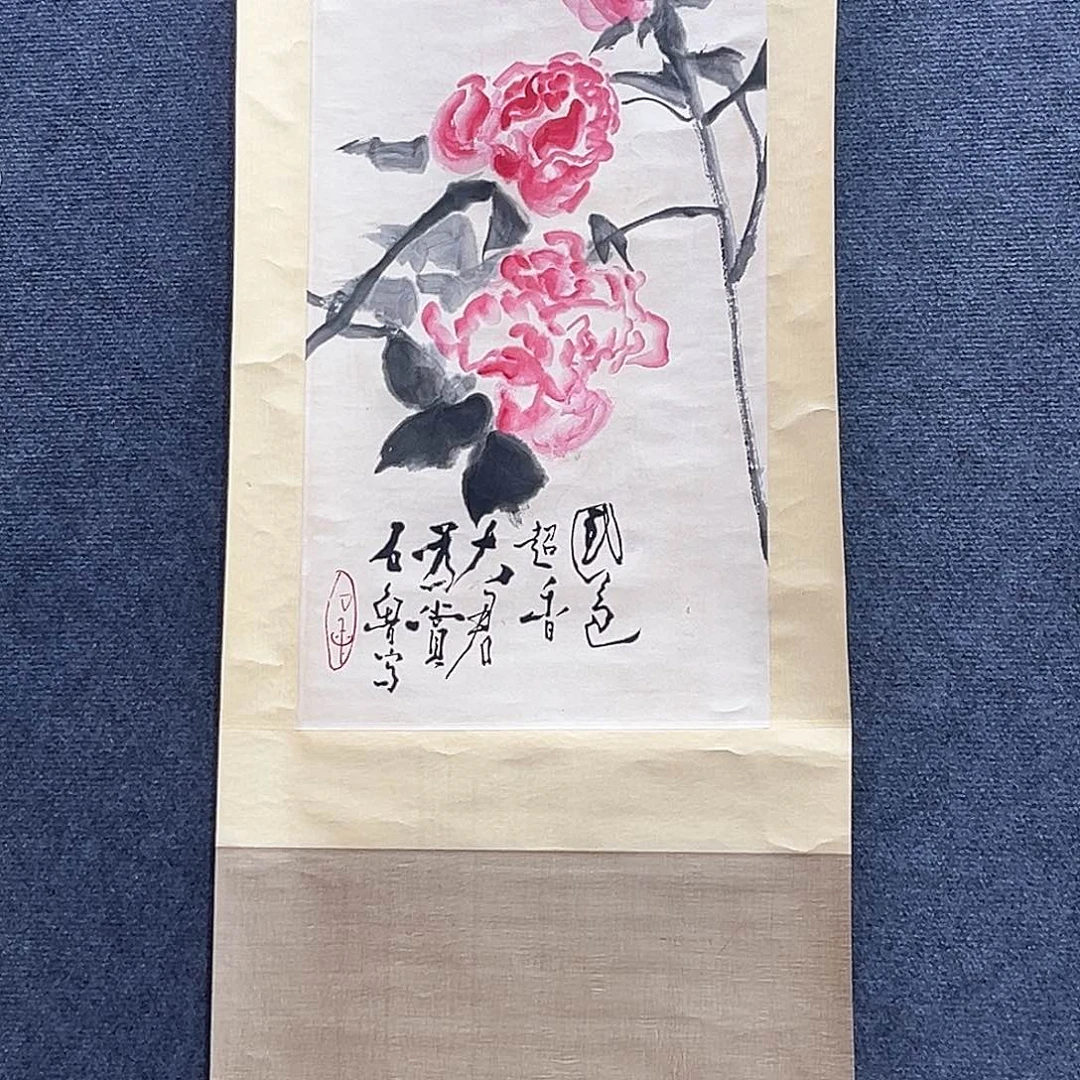 國色
超香
大君
鴌賞
石魯写